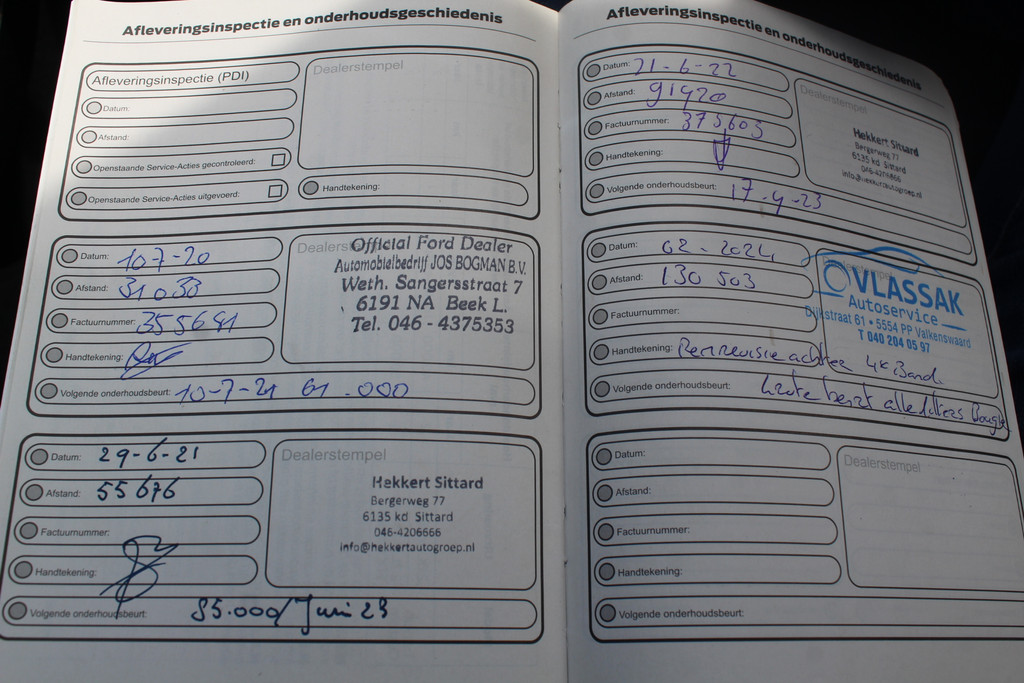 Afleveringsinspectie en onderhoudsgeschiedenis
Afleveringsinspectie (PDI)
Datum:
Afstand:
Openstaande Service-Acties gecontroleerd:
Openstaande Service-Acties uitgevoerd:
Dealerstempel
Handtekening:
Datum: 10-7-20
Afstand: 31033
Factuurnummer: 355691
Handtekening:
Volgende onderhoudsbeurt: 10-7-21 61.000
Dealerstempel
Official Ford Dealer
Automobielbedrijf JOS BOGMAN B.V.
Weth. Sangersstraat 7
6191 NA Beek L.
Tel. 046 - 4375353
Datum: 29-6-21
Afstand: 55676
Factuurnummer:
Handtekening:
Volgende onderhoudsbeurt: 85.000/Juni 23
Dealerstempel
Hekkert Sittard
Bergerweg 77
6135 kd Sittard
046-4206666
info@hekkertautogroep.nl
Afleveringsinspectie en onderhoudsgeschiedenis
Datum: 21-6-22
Afstand: 91920
Factuurnummer: 373603
Handtekening:
Volgende onderhoudsbeurt: 17-4-23
Dealerstempel
Hekkert Sittard
Bergerweg 77
6135 kd Sittard
046-4206666
info@hekkertautogroep.nl
Datum: 02-2024
Afstand: 130503
Factuurnummer:
Handtekening: Remrevisie achter 4x Band.
Volgende onderhoudsbeurt: Grote beurt alle filters Bougie
VLASSAK
Autoservice
Dijkstraat 61 • 5554 PP Valkenswaard
T 040 204 05 97
Datum:
Afstand:
Factuurnummer:
Handtekening:
Volgende onderhoudsbeurt:
Dealerstempel